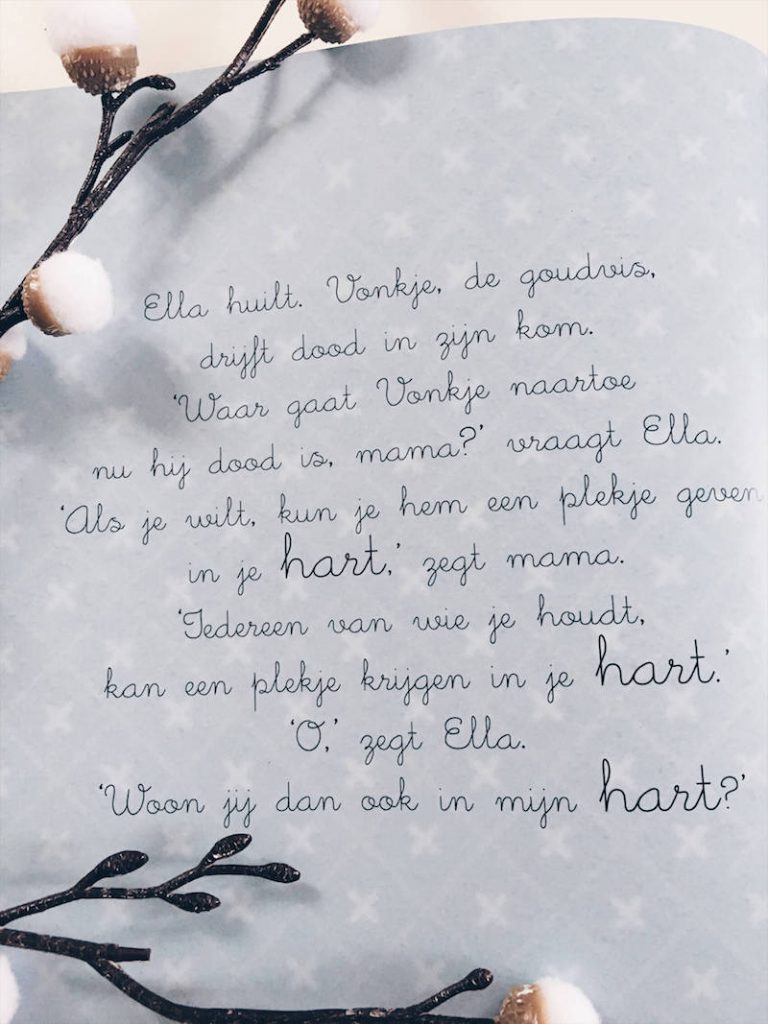 Ella huilt. Vonkje, de goudvis,
drijft dood in zijn kom.
‘Waar gaat Vonkje naartoe
nu hij dood is, mama?’ vraagt Ella.
‘Als je wilt, kun je hem een plekje geven
in je hart,’ zegt mama.
‘Iedereen van wie je houdt,
kan een plekje krijgen in je hart.’
‘O,’ zegt Ella.
‘Woon jij dan ook in mijn hart?’